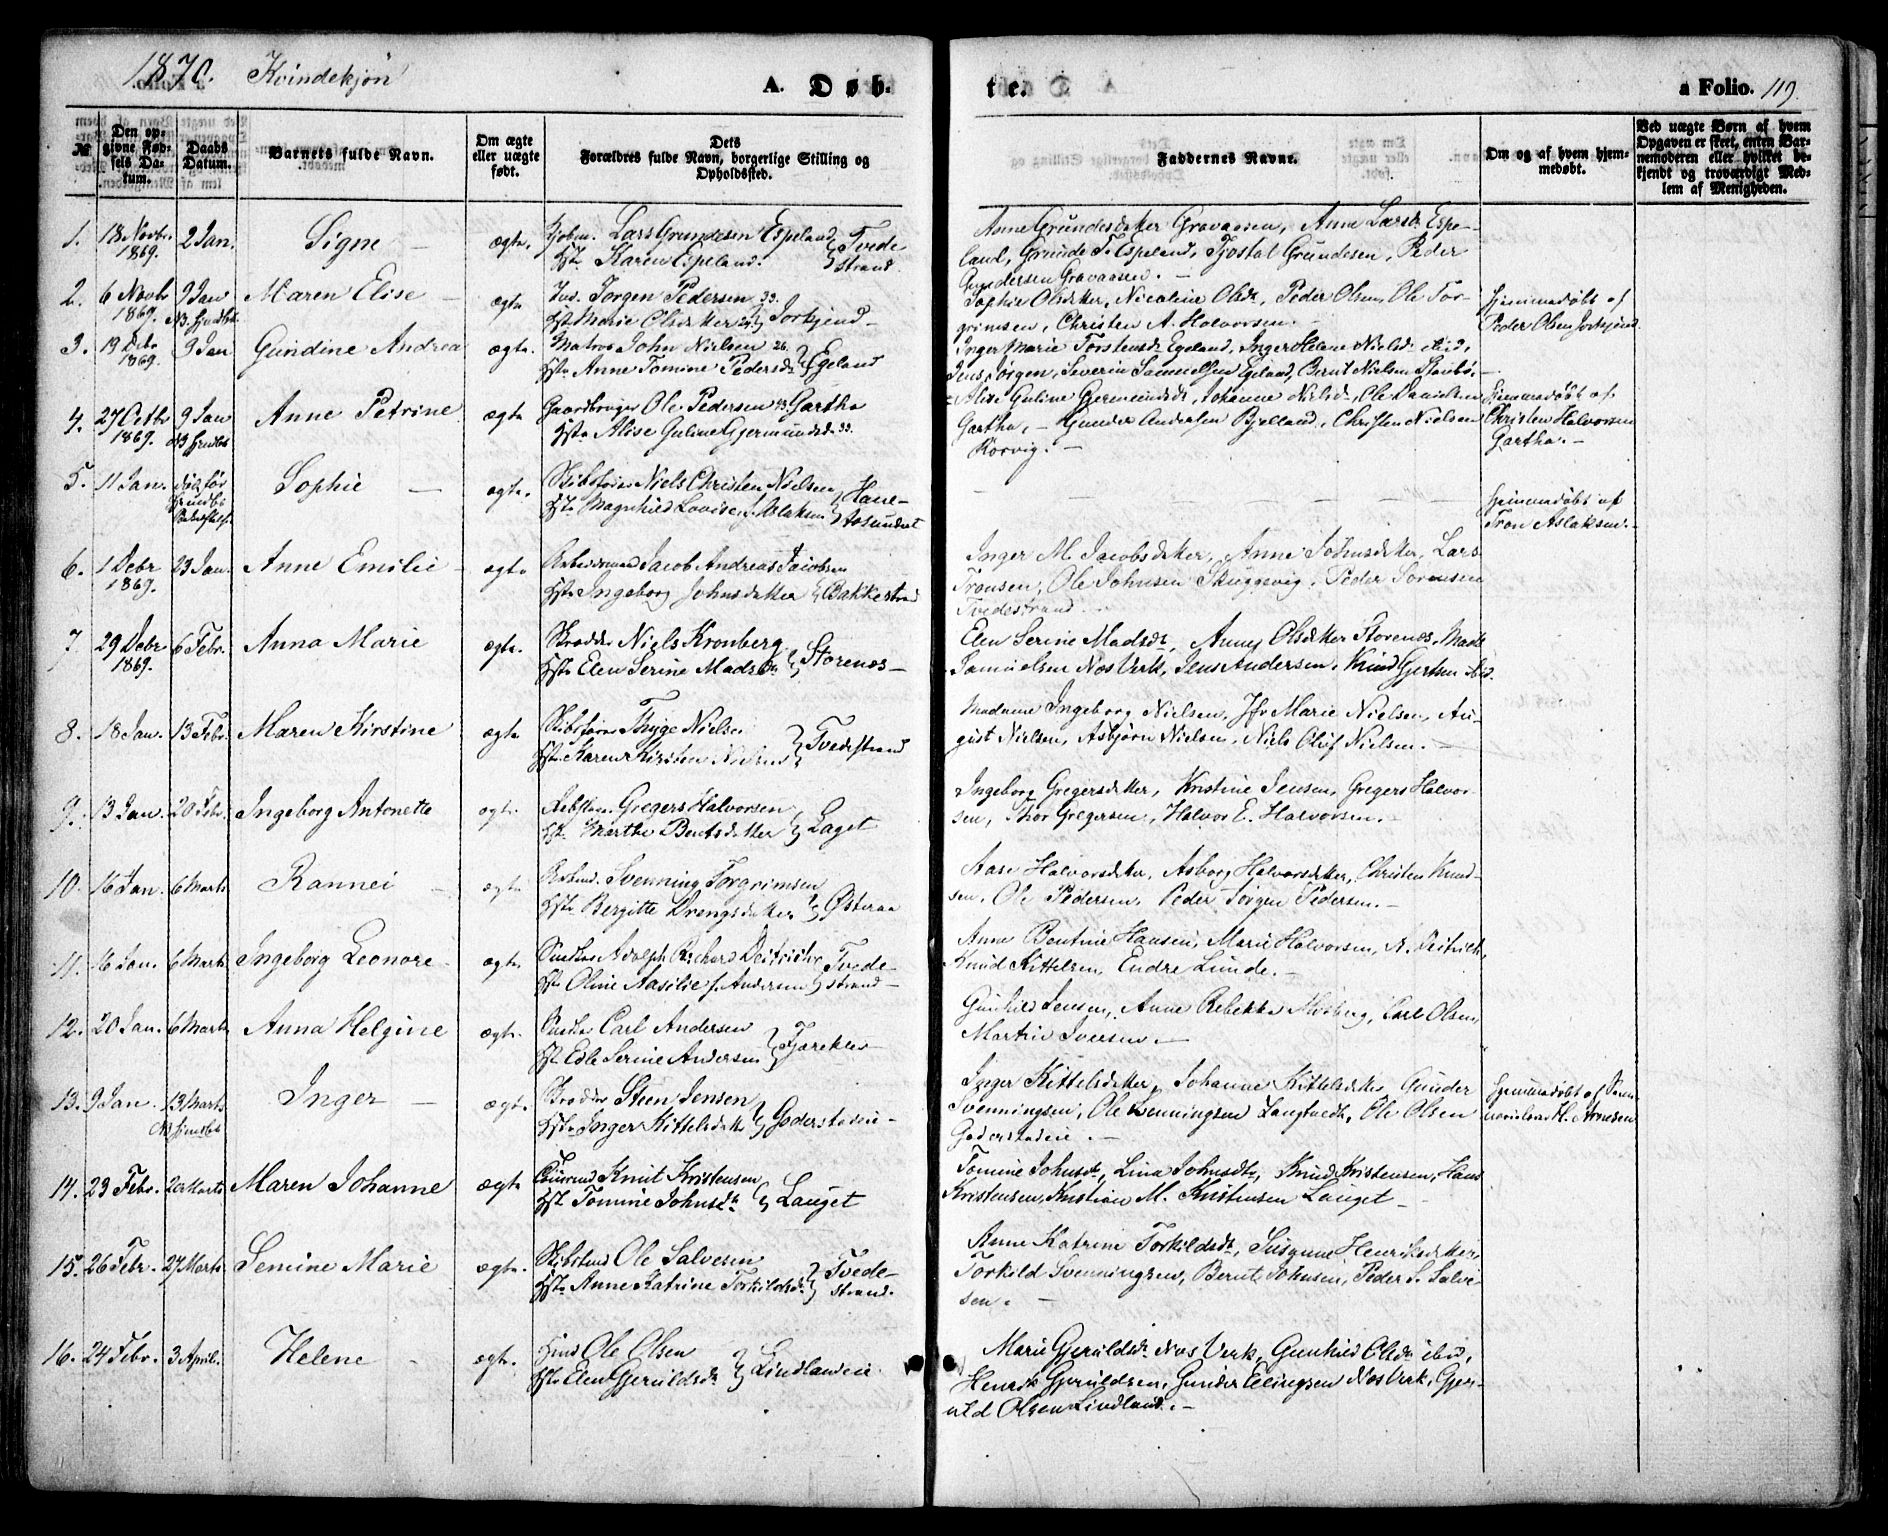 1870. Kvindekjøn A. Døb- te. a Folio. 119.
№ Den opgivne Fødsels Datum. Daabs Datum. Barnets fulde Navn. Om ægte eller uægte født. Dets Forældres fulde Navn, borgerlige Stilling og Opholdssted. Faddernes Navne. Om og af hvem hjemmedøbt. Ved uægte Børn af hvem Opgaven er skeet, enten Barnemoderen eller hvilket bekjendt og troværdigt Medlem af Menigheden.
1. 18 Novbr. 1869. 2 Jan. Signe ægte.
Lars Grundesen Espeland
Karen Espeland. Tvedestrand.
Anne Grundesdatter Gravaasen, Anne Larsdr Espe-
land, Grunde T. Espeland, Tjostal Grundesen, Peder
Gundersen Gravaasen.
2. 6 Novbr 1869. 9 Jan Maren Elise ægte
Jørgen Pedersen 33.
Marie Olsdatter
Sophie Olsdatter, Nicoline Olsdr, Peder Olsen, Ole Tor-
grimsen, Christen A. Halvorsen.
Hjemmedøbt af
Peder Olsen
3. 19 Debr 1869. 9 Jan Gundine Andrea ægte.
Matros John Nielsen 26.
Anne Tomine Pedersdr Egeland
Inger Marie Torstensdr Egeland, Inger Helene Nielsdr ibid,
Jens Jörgen, Severin Samuelsen Egeland, Bernt Nielsen
4. 27 Octbr 1869. 9 Jan Anne Petrine ægte
Gaardbruger Ole Pedersen 43 Gartha
Alise Guline Gjermundsdr 33.
Alise Guline Gjermundsdr, Johanne Nielsdr, Ole Danielsen
Gartha, Gunder Andersen Bjelland, Christen Nielsen
Rörvig.
Hjemmedøbt af
Christen Halvorsen
Gartha.
5. 11 Jan. Sophie ægte.
Skibsfører Niels Christen Nielsen
Magnhild Lovise f. Aslaksen
Hjemmedøbt af
Tron Aslaksen.
6. 1 Debr 1869. 23 Jan. Anne Emilie ægte
Arbeidsmand Jacob Andreas Jacobsen
Ingeborg Johnsdatter Bakkestrand
Inger M. Jacobsdatter, Anne Johnsdatter, Lars
Tronsen, Ole Johnsen Skuggevig, Peder Sörensen
Tvedestrand
7. 29 Debr 1869. 6 Febr. Anna Marie ægte.
Skrædder Niels Kronberg
Elen Serine Madsdr Storenæs
Elen Serine Madsdr, Anne Olsdatter Storenæs, Mads
Samuelsen Næs Verk, Jens Andersen, Knud Gjertsen ibid.
8. 18 Jan. 13 Febr. Maren Kirstine ægte
Skibsfører Thyge Nielsen
Karen Kirstine Nielsen Tvedestrand
Madame Ingeborg Nielsen, Jfr Marie Nielsen, Au-
gust Nielsen, Asbjørn Nielsen, Niels Oluf Nielsen.
9. 13 Jan. 20 Febr. Ingeborg Antonette ægte.
Gregers Halvorsen
Marthe Bentsdatter Laget
Ingeborg Gregersdatter, Kristine Jensen, Gregers Halvor-
sen, Thor Gregersen, Halvor E. Halvorsen.
10. 16 Jan 6 Marts Rannei ægte
Svenning Torgrimsen
Bergitte Drengsdatter Østeraa
Aase Halvorsdatter, Asborg Halvorsdatter, Christen Knud-
sen, Ole Pedersen, Peder Jörgen Pedersen.
11. 16 Jan. 6 Marts Ingeborg Leonore ægte.
Adolph Richard Deitrichs
Oline Aasilie f. Andersen Tvedestrand
Anne Bentine Hansen, Marie Halvorsen, A. Deitrich,
Knud Kittelsen, Endre Lunde.
12. 20 Jan. 6 Marts Anna Helgine ægte.
Carl Andersen
Edle Serine Andersen Fjæreklev
Gunhild Jensen, Anne Rebekka Mosberg, Carl Olsen,
Martin Iversen.
13. 9 Jan. 13 Marts Inger ægte.
Skrædder Steen Jensen
Inger Kittelsdatter Goderstadeie
Inger Kittelsdatter, Johanne Kittelsdatter, Gunder
Svenningsen, Ole Svenningsen Langtvedt, Ole Olsen
Goderstadeie.
Hjemmedøbt af
H. Arnesen
14. 23 Febr. 20 Marts Maren Johanne ægte
Knut Kristensen
Tomine Johnsdr Lauget
Tomine Johnsdr, Lina Johnsdtr, Knud Kristensen, Hans
Kristensen, Kristian M. Kristensen Lauget
15. 26 Febr. 27 Marts Semine Marie ægte.
Ole Salvesen
Anne Katrine Torkildsdr Tvedestrand.
Anne Katrine Torkildsdr, Susanne Henriksdatter,
Torkild Svenningsen, Bernt Johnsen, Peder S. Salve-
sen.
16. 24 Febr. 3 April. Helene ægte.
Ole Olsen
Elen Gjeruldsdr Lindlandeie
Marie Gjeruldsdr Næs Verk, Gunhild Olsdr ibid,
Henrik Gjeruldsen, Gunder Ellingsen Næs Verk, Gje-
ruld Olsen Lindland.